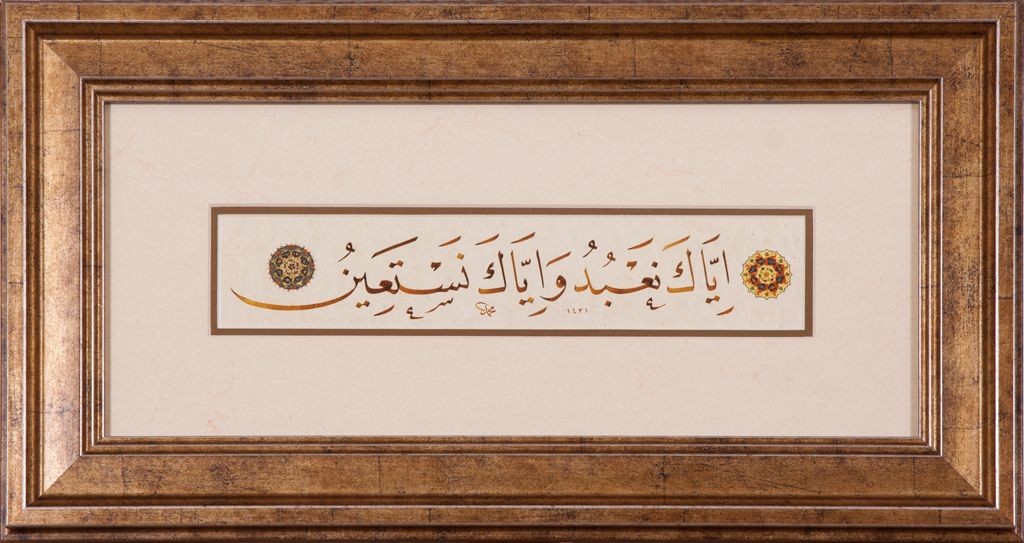 اِيَّاكَ نَعْبُدُ وَاِيَّاكَ نَسْتَعِينُ
١٤٣١